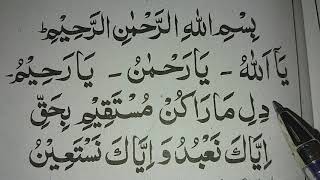 بِسْمِ اللهِ الرَّحْمٰنِ الرَّحِيْمِ ط
يَآ اَللهُ - يَارَحْمٰنُ - يَارَحِيْمُ -
دِلِ مَارَاكُنْ مُسْتَقِيْمِ بِحَقِّ
اِيَّاكَ نَعْبُدُ وَ اِيَّاكَ نَسْتَعِيْنُ